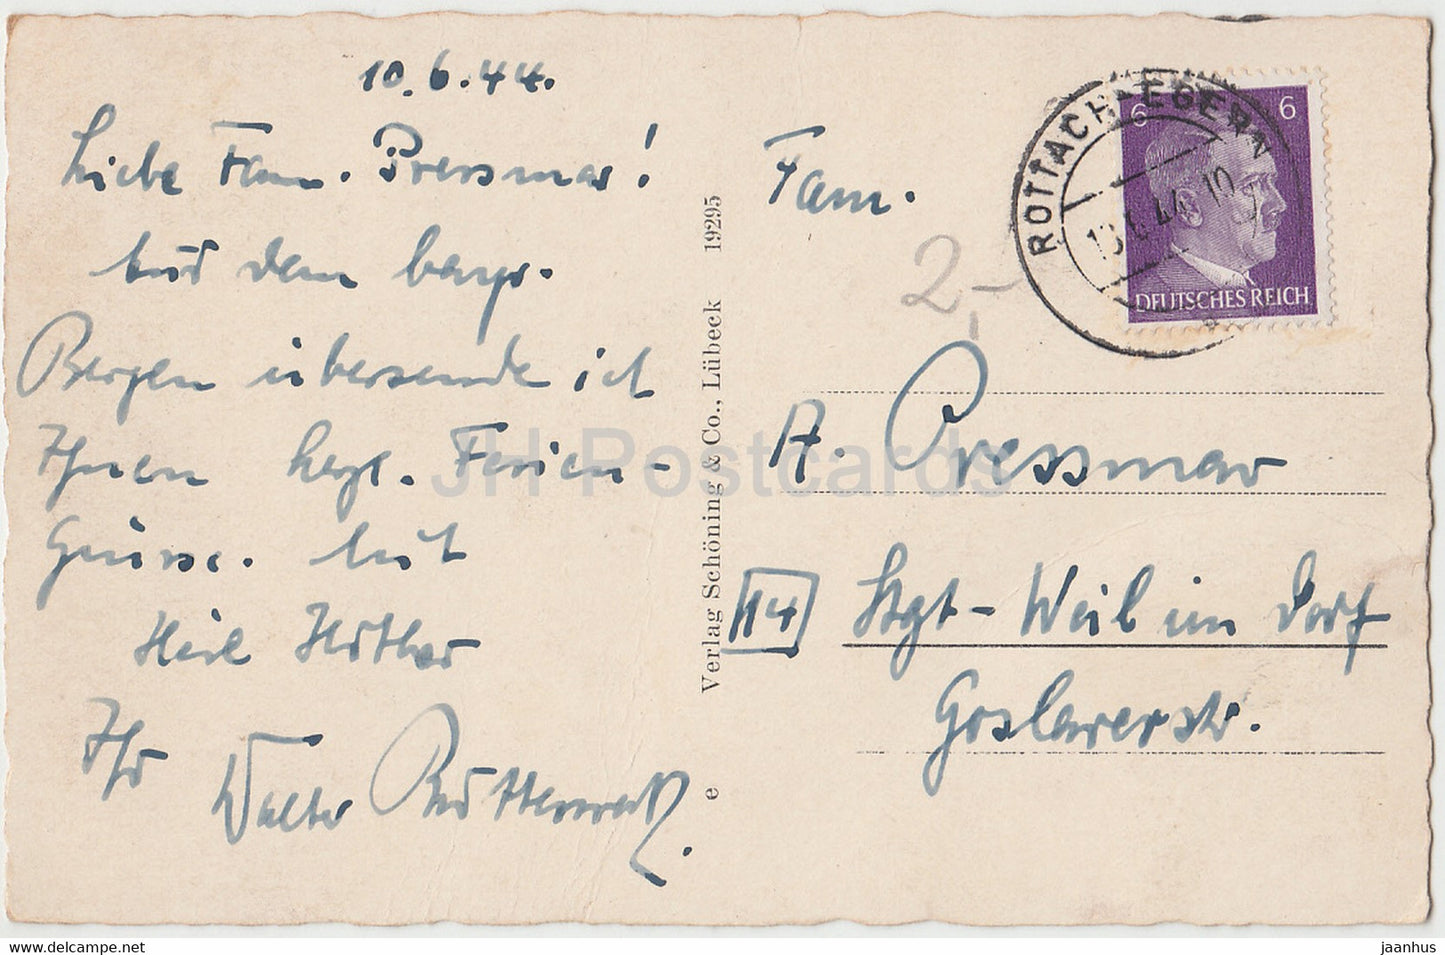 10.6.44.
Liebe Fam. Pressmar!
Aus dem bayr.
Bergen übersende ich
Ihnen hrzl. Ferien-
Grüsse. Mit
Heil Hitler
Ihr
Walter
Verlag Schöning & Co., Lübeck 19295
e
Fam.
2,-
A. Pressmar
14
Stgt-Weil im Dorf
Goslarerstr.
ROTTACH-EGERN
6 6
DEUTSCHES REICH
JH Postcards
eu.jhpostcards.com
jaanhus